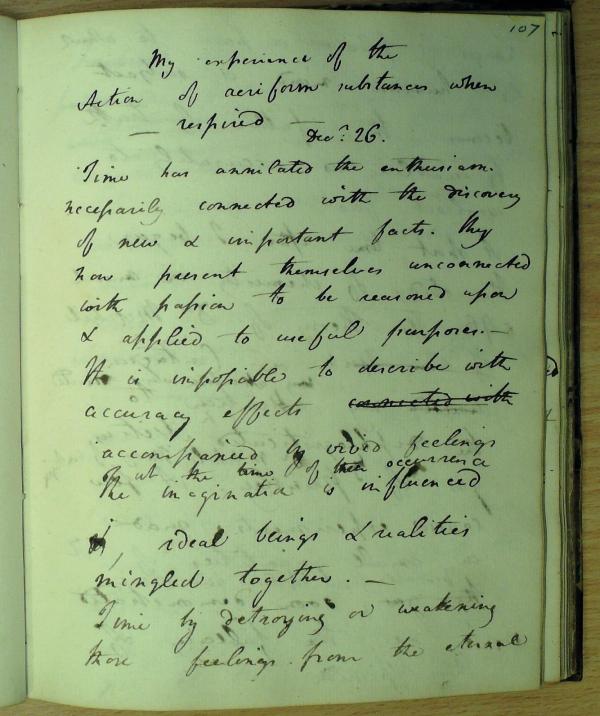 107
My experience of the
Action of aeriform substances when
— respired —
Decr. 26.
Time has annilated the enthusiasm
necessarily connected with the discovery
of new & important facts. they
now present themselves unconnected
with passion to be reasoned upon
& applied to useful purposes. —
It is impossible to describe with
accuracy effects connected with
accompanied by vivid feelings
at the time of their occurrence
The imagination is influenced
ideal beings & realities
mingled together. —
Time by detroying or weakening
those feelings from the eternal